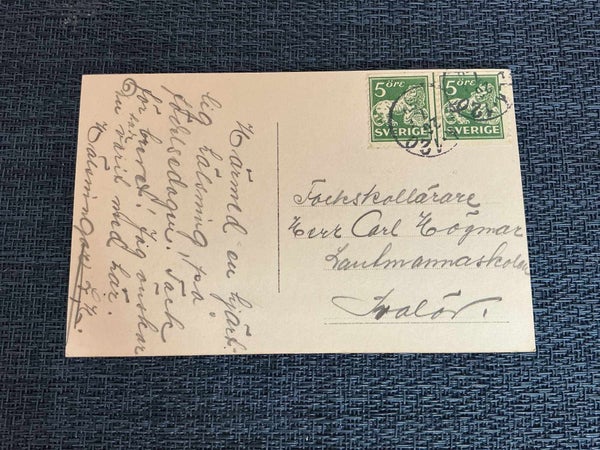 Härmed en hjärt-
lig hälsning på
födelsedagen. Tack
för brevet! Jag önskar
Du varit med här.
Hälsningar
5 ÖRE
SVERIGE
5 ÖRE
SVERIGE
Folkskollärare
Herr Carl Högmar
Lantmannaskolan
Svalöv.